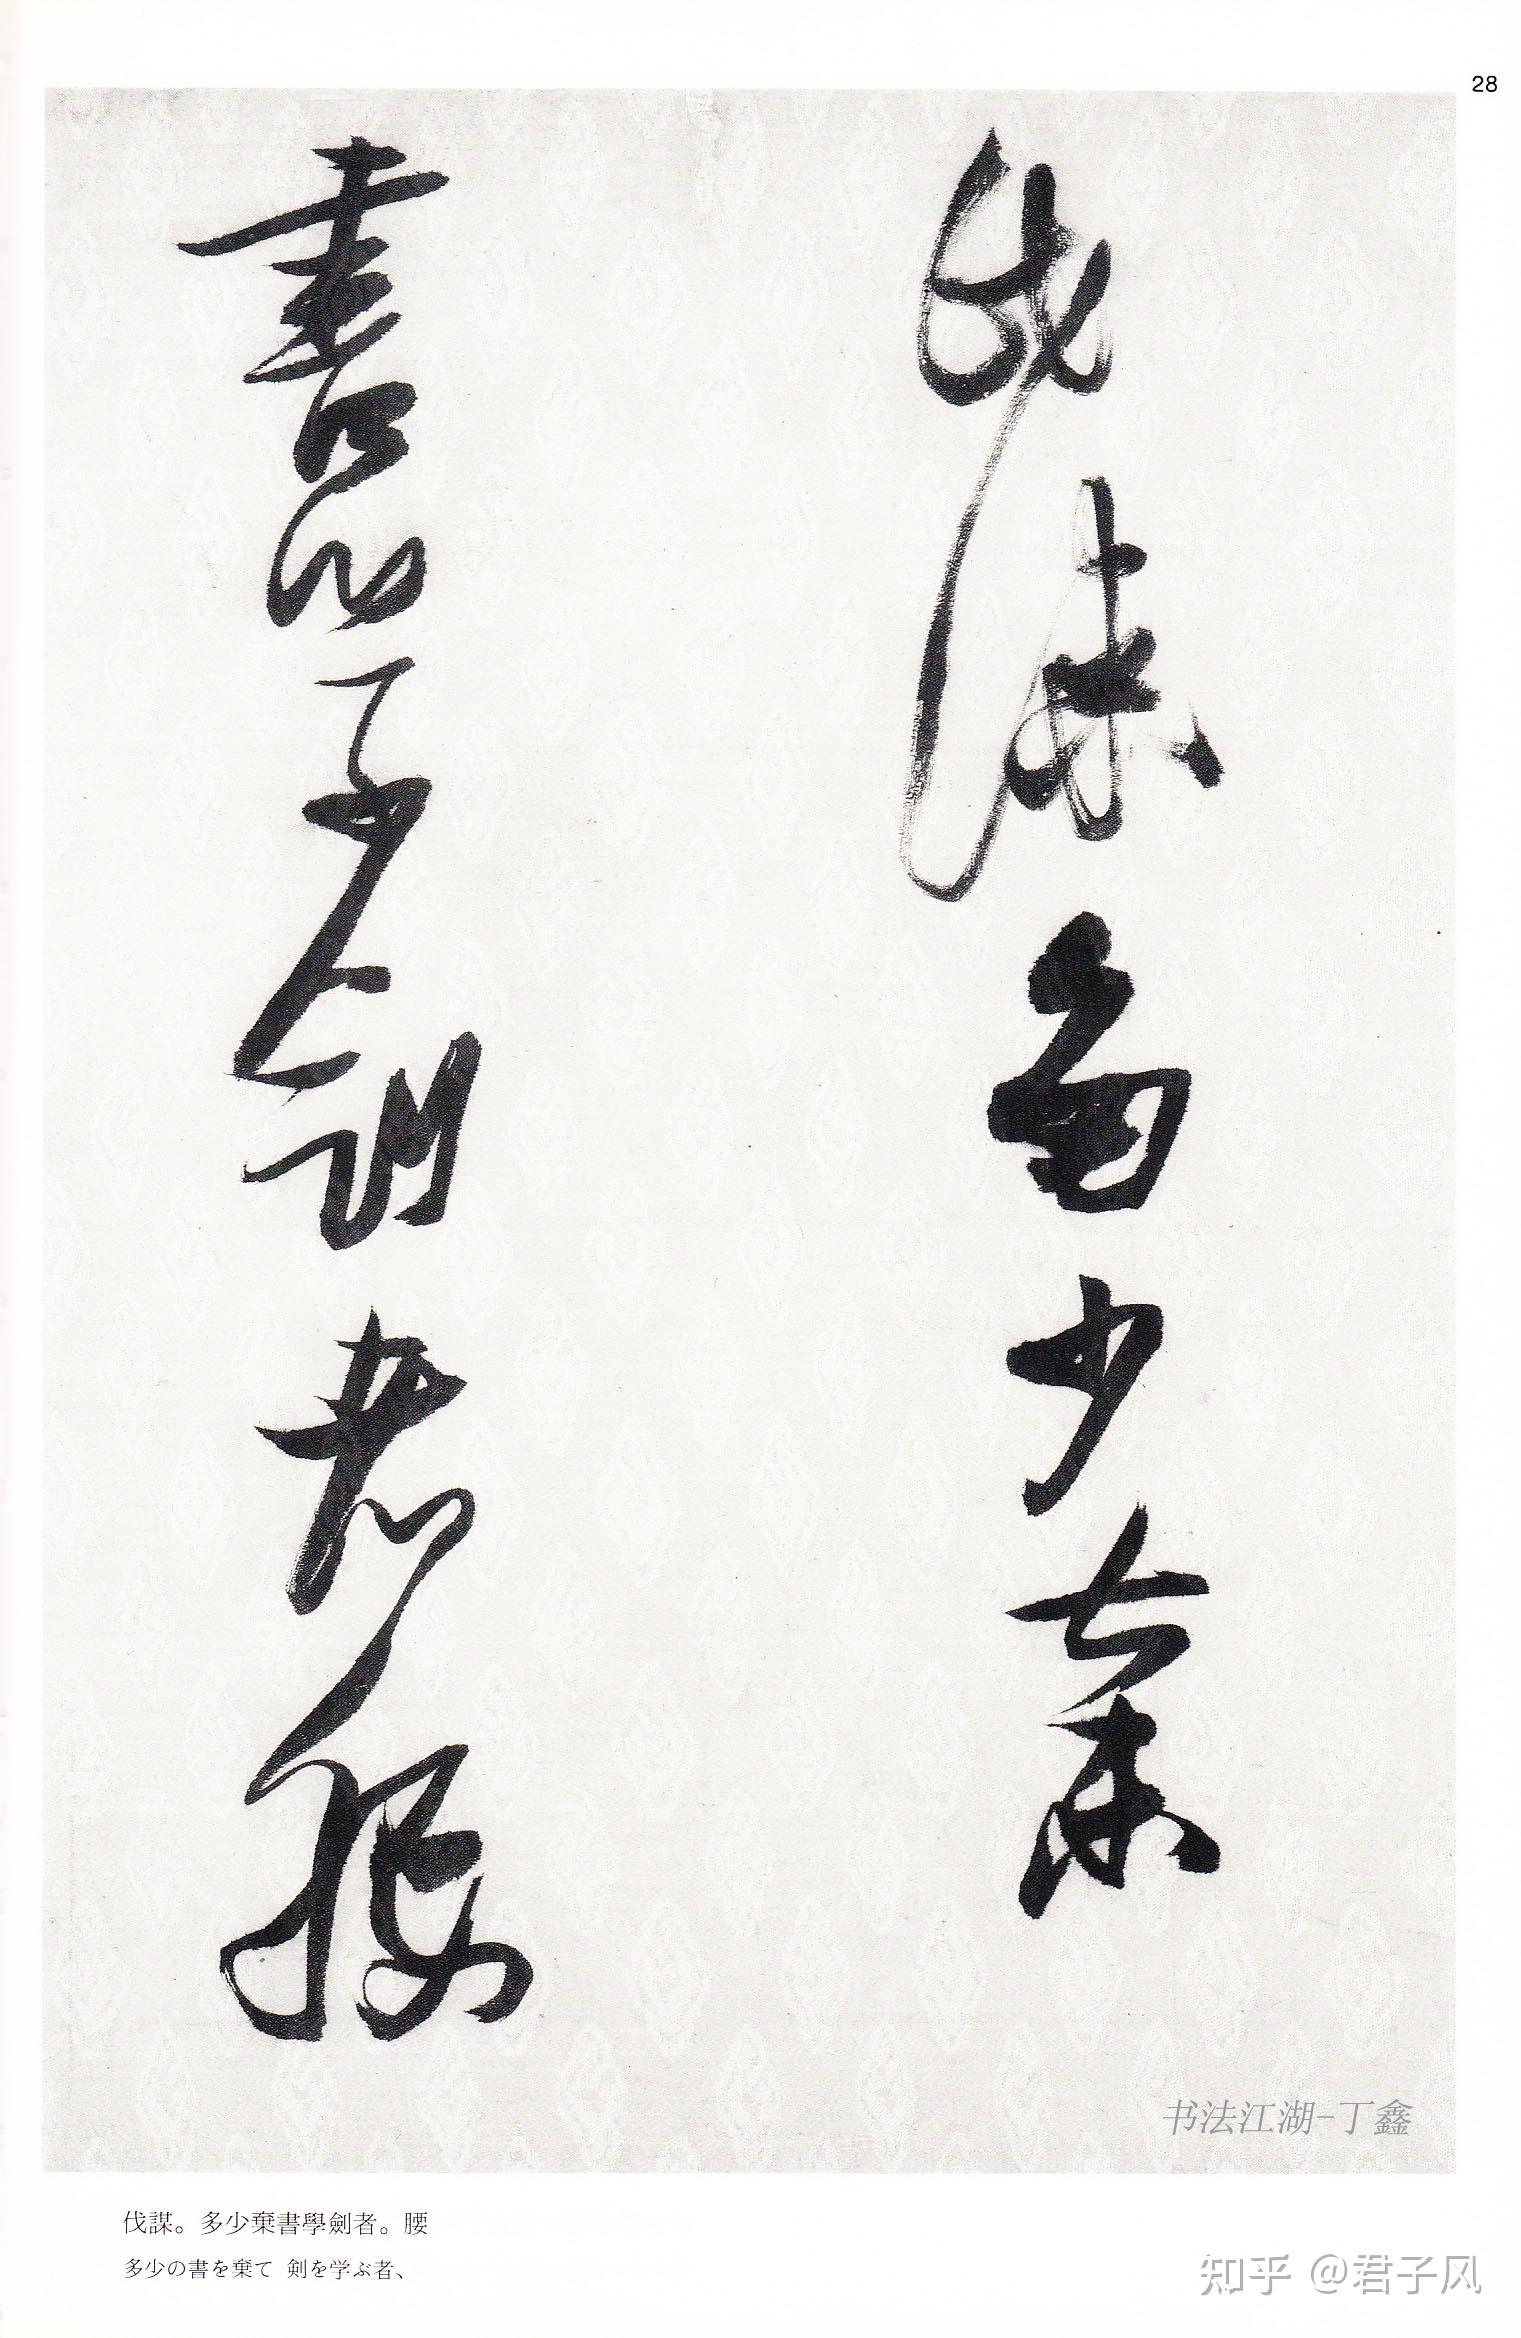 28
伐謀多少棄
書學劍者腰
书法江湖-丁鑫
伐謀。多少棄書學劍者。腰
多少の書を棄て 剣を学ぶ者、
知乎 @君子风